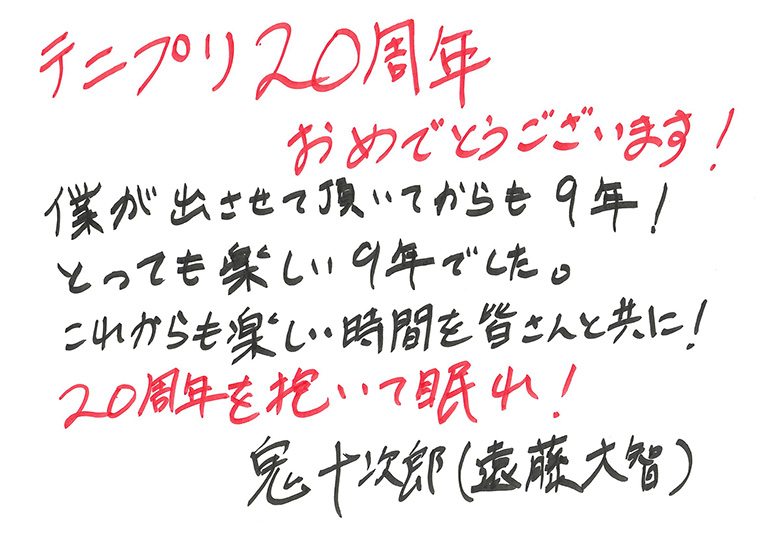 テニプリ20周年
おめでとうございます!
僕が出させて頂いてからも9年!
とっても楽しい9年でした。
これからも楽しい時間を皆さんと共に!
20周年を抱いて眠れ!
鬼十次郎(遠藤大智)